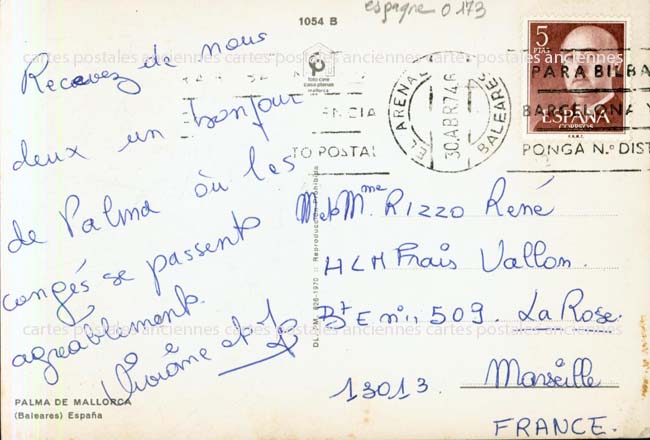 1054 B
espagne 0173
cartes postales anciennes cartes postales anciennes cartes postales anciennes
Recevez de nous
deux un bonjour
de Palma où les
congés se passent
agréablement.
et
foto cine
mallorca
EL ARENAL
30.ABR.74.6
BALEARES
5
PTAS
ESPAÑA
CORREOS
PARA BILBA
BARCELONA Y
PONGA N.º DIST
NCIA
TO POSTAL
Reproducción Prohibida
M et Mme Rizzo René
HLM Frais Vallon.
Bt E nº 509. La Rose.
13013. Marseille
FRANCE.
cartes postales anciennes cartes postales anciennes cartes postales anciennes
PALMA DE MALLORCA
(Baleares) España